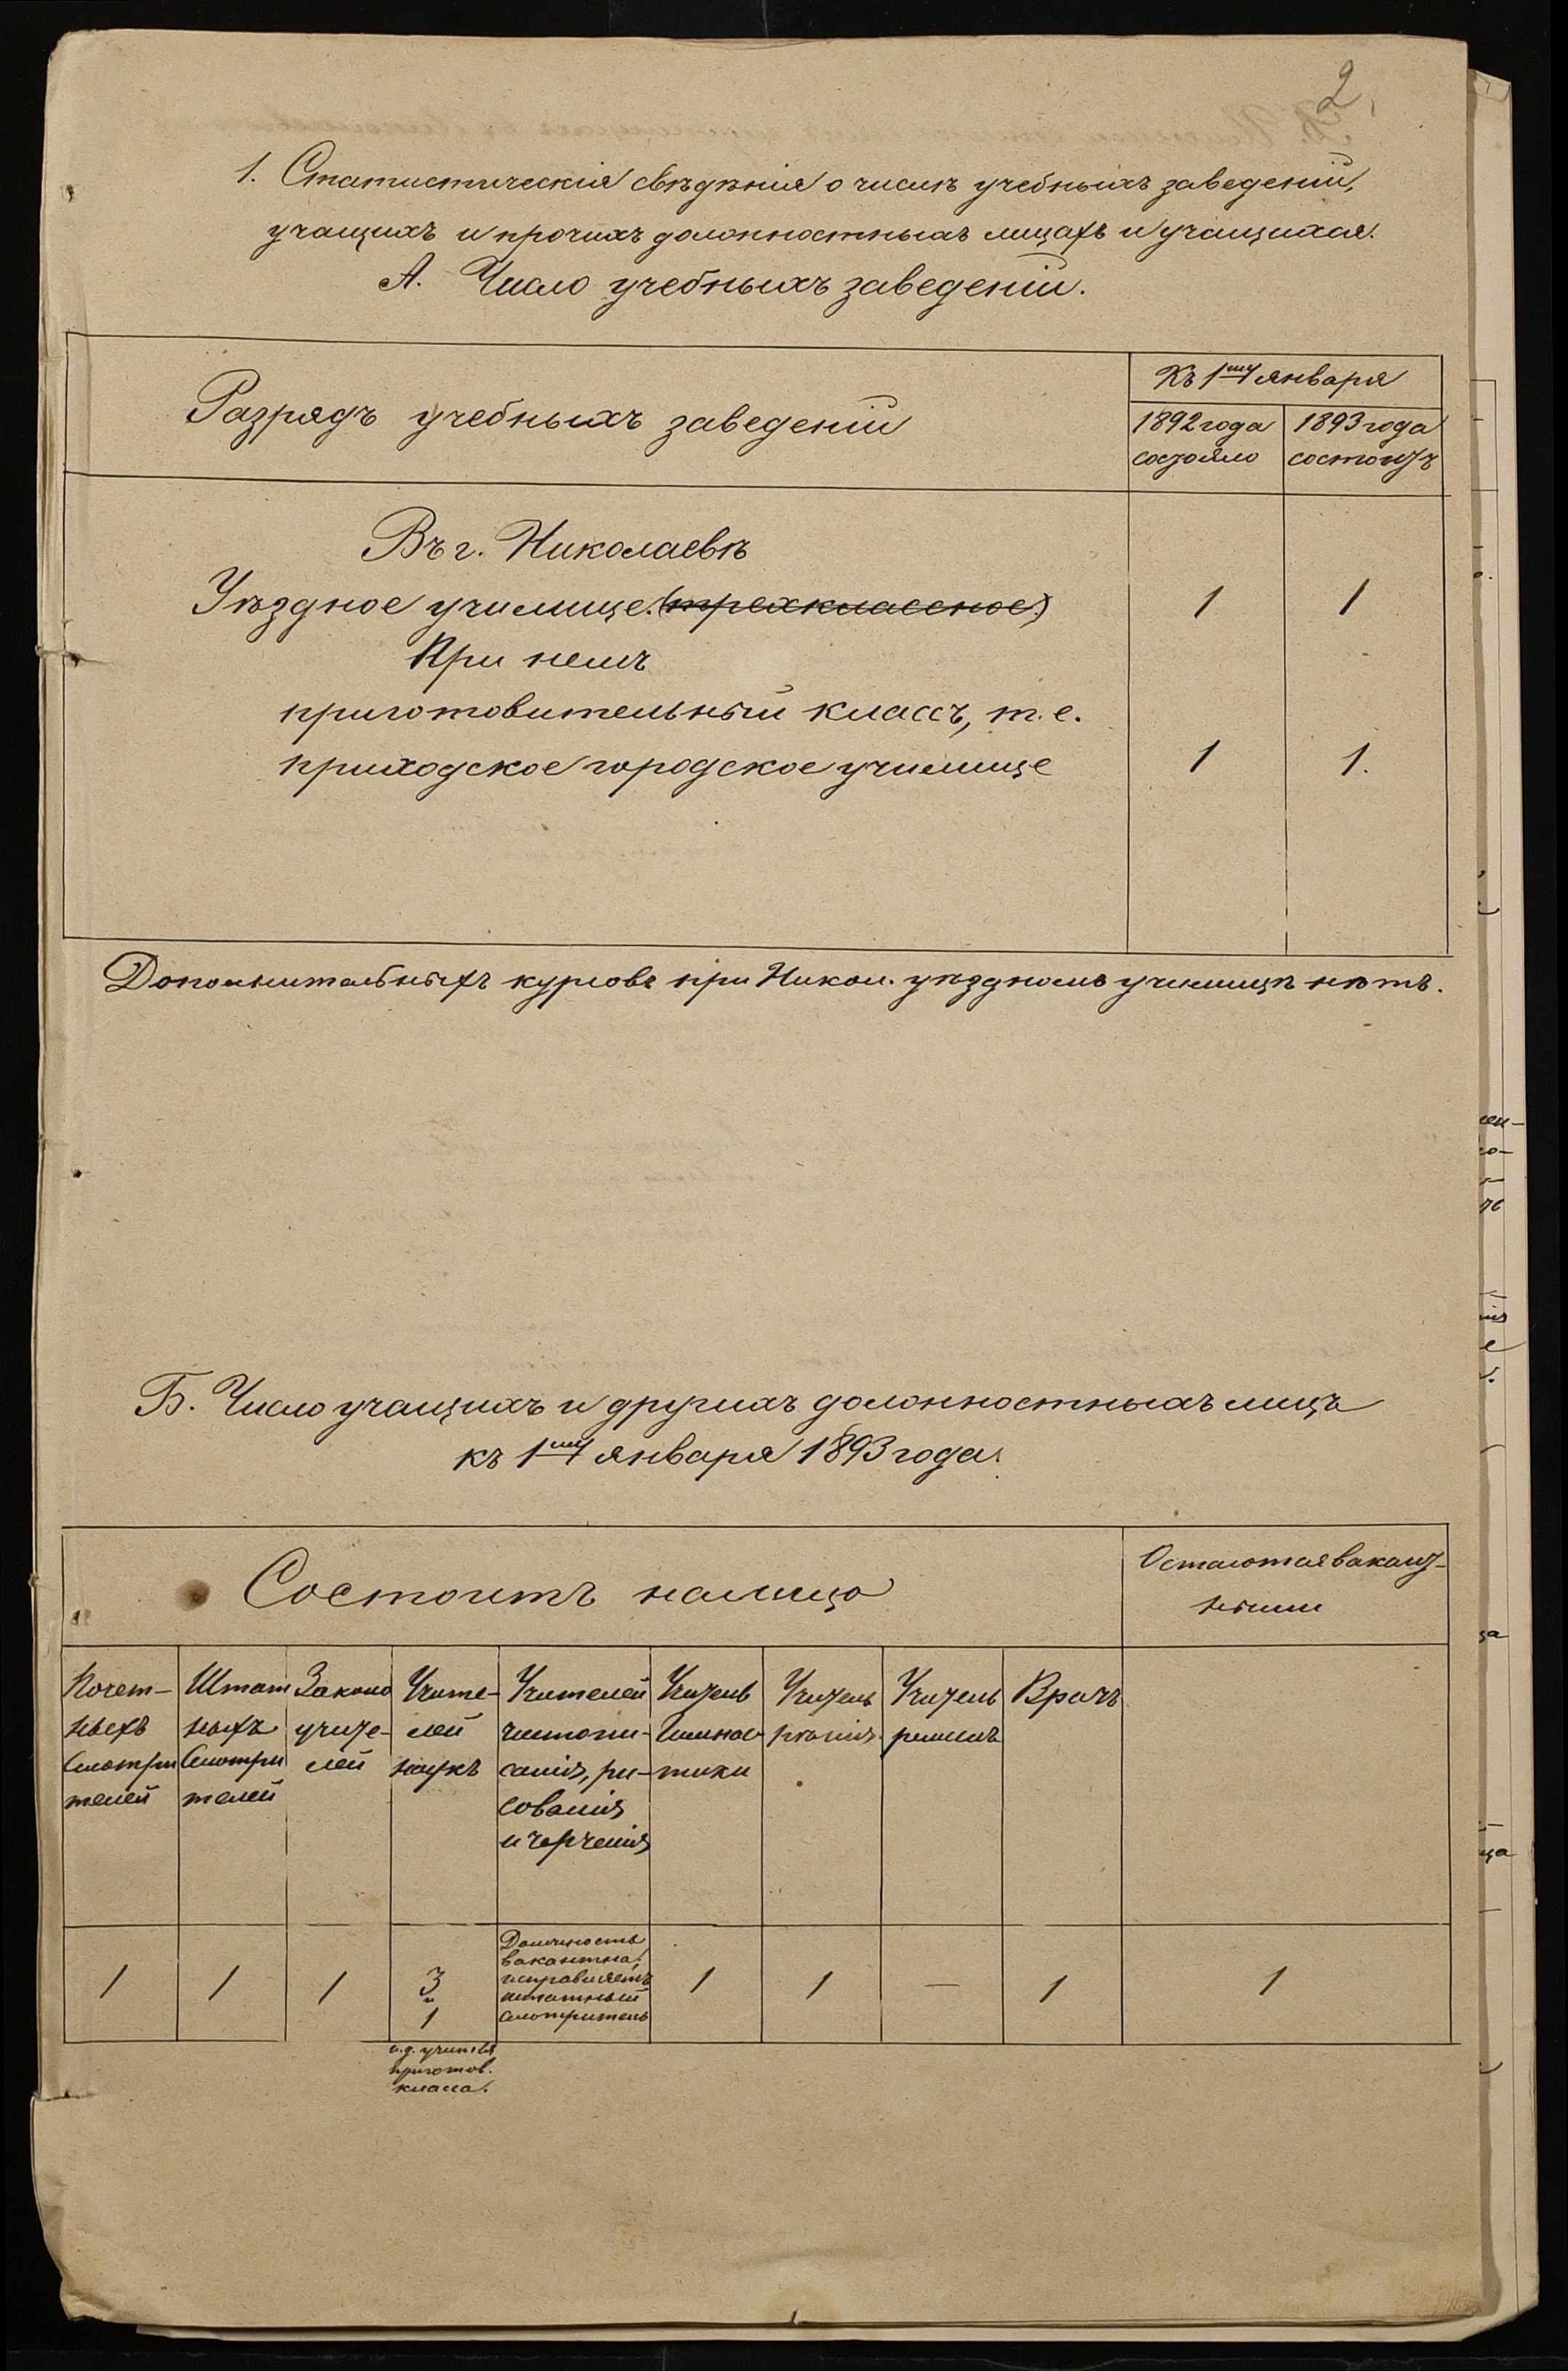 2.
1. Статистическія свѣдѣнія о числѣ учебныхъ заведеній,
учащихъ и прочихъ должностныхъ лицахъ и учащихся.
А. Число учебныхъ заведеній.
Разрядъ учебныхъ заведеній
Къ 1му января
1892 года 1893 года
состояло состоитъ
Въ г. Николаевѣ
Уѣздное училище. (трехклассное) 1 1
При немъ
приготовительный классъ, т.е.
приходское городское училище 1 1.
Дополнительныхъ курсовъ при Никол. уѣздномъ училищѣ нѣтъ.
Б. Число учащихъ и другихъ должностныхъ лицъ
къ 1му января 1893 года.
Состоитъ налицо
Остаются вакант-
ными
Почет-
ныхъ
Смотри
телей
Штат
ныхъ
Смотри
телей
Законо
учите-
лей
Учите-
лей
наукъ
Учителей
чистопи-
санія, ри-
сованія
и черченія
Учитель
Гимнас-
тики
Учитель
пѣнія
Учитель
ремеслъ
Врачъ
1
1
1
3
и
1
Должность
вакантна,
исправляетъ
штатный
смотритель
1
1
—
1
1
и.д. учителя
приготов.
класса.